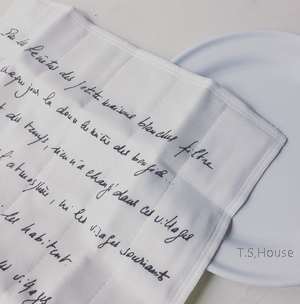 Par les fenêtres des petites maisons blanches filtre
chaque jour la douce lumière des bougies.
du temps, rien n'a changé dans ces villages
l'atmosphère, ni les visages souriants
les habitent.
villages
T.S,House